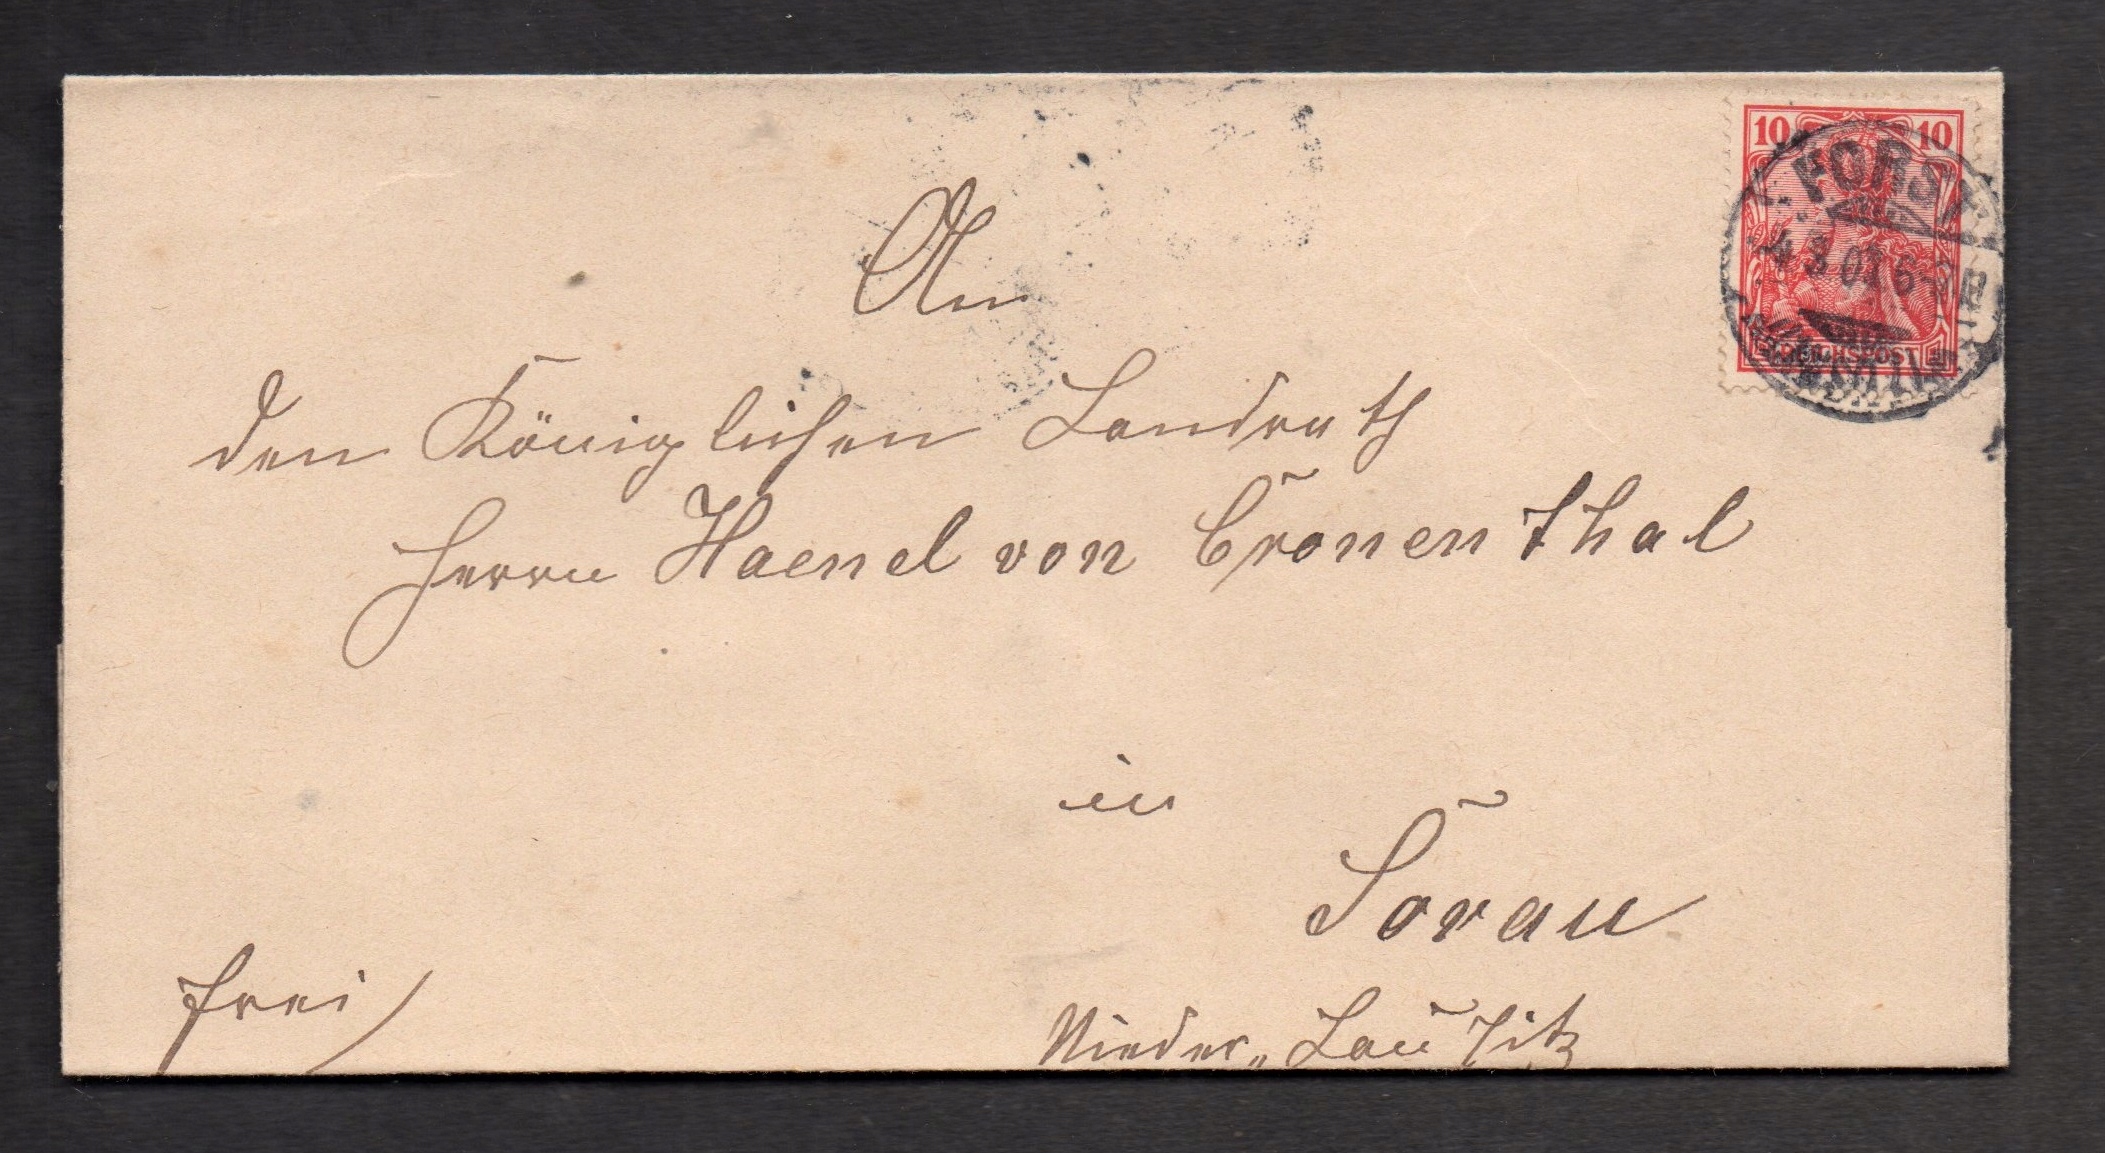 10 10
FORST
REICHSPOST
An
den Königlichen Landrath
Herrn Haenel von Cronenthal
in
Sorau
frei
Nieder-Lausitz